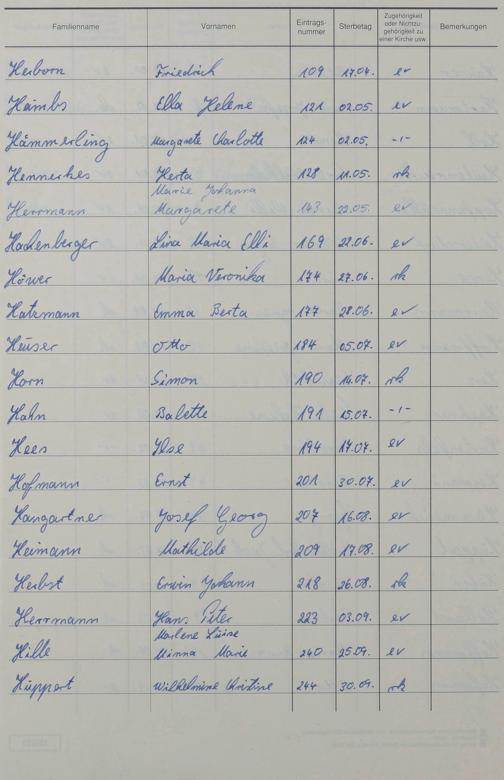 Familienname Vornamen Eintrags- nummer Sterbetag Zugehörigkeit oder Nichtzu- gehörigkeit zu einer Kirche usw. Bemerkungen
Heiborn Friedrich 109 17.04. ev
Heimbs Ella Helene 121 02.05. ev
Hämmerling Margarete Charlotte 124 02.05. -"-
Hennerkes Herta 128 11.05. rk
Marie Johanna
Herrmann Margarete 143 22.05. ev
Hachenberger Lina Maria Elli 169 22.06. ev
Höwer Maria Veronika 174 27.06. rk
Hatzmann Emma Berta 177 28.06. ev
Heuser Otto 184 05.07. ev
Horn Simon 190 14.07. rk
Hahn Babette 191 15.07. -"-
Hees Ilse 194 17.07. ev
Hofmann Ernst 201 30.07. ev
Hangartner Josef Georg 207 16.08. ev
Heimann Mathilde 209 17.08. ev
Herbst Erwin Johann 218 26.08. rk
Herrmann Hans Peter 223 03.09. ev
Marlene Luise
Hille Minna Marie 240 25.09. ev
Hüppert Wilhelmine Christine 244 30.09. rk